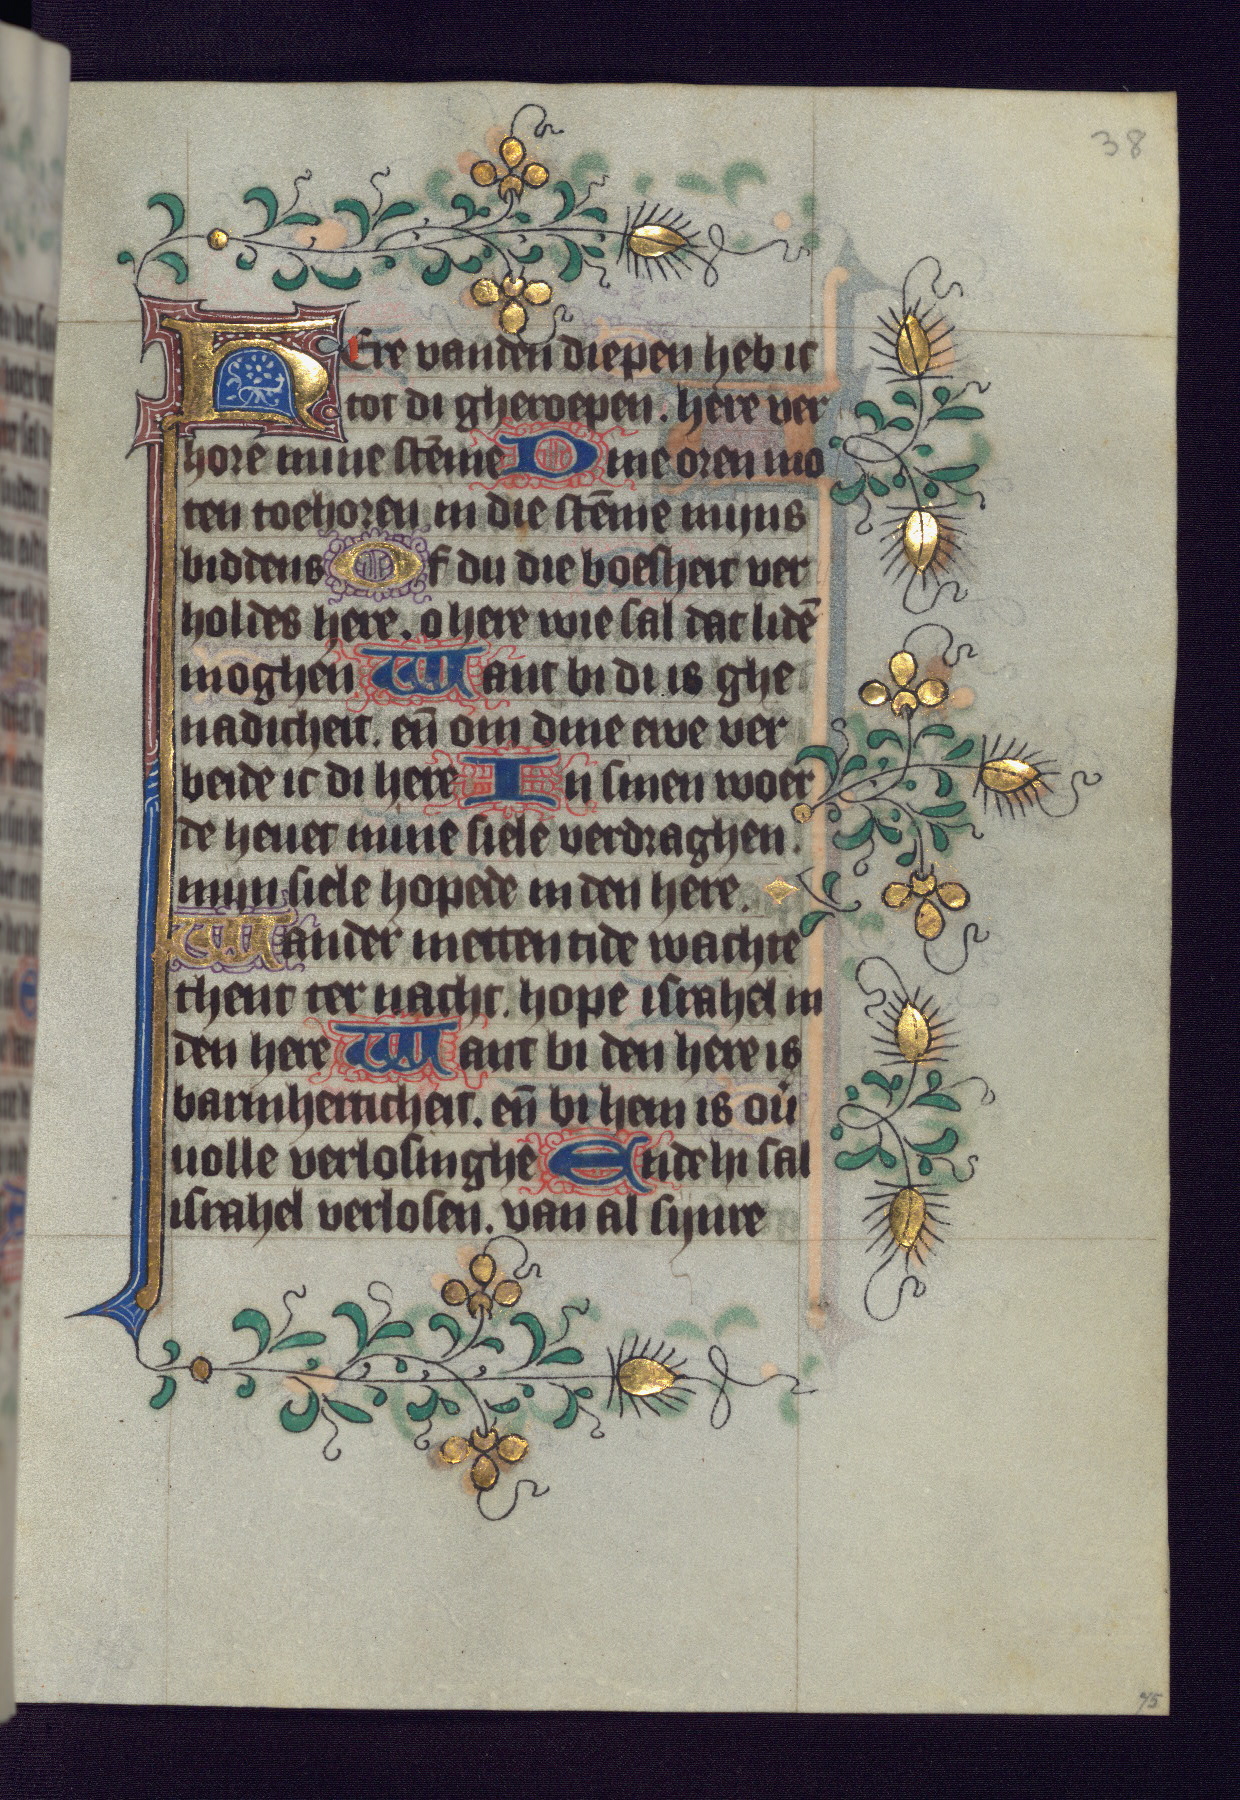 38
HEre vanden diepen heb ic
tot di gheroepen. here ver
hore mine stēme Dine oren mo
ten toehoren in die stēme mijns
biddens Of du die boesheit ver
holdes here. o here wie sal dat lidē
moghen Want bi di is ghe
nadicheit. eñ om dine ewe ver
beide ic di here In sinen woer
de heuet mine siele verdraghen.
mijn siele hopede in den here.
Wander metten tide wachte
thent ter nacht. hope israhel in
den here Want bi den here is
barmherticheit. eñ bi hem is ou̇
uolle verlosinghe Ende hi sal
israhel verlosen. van al sijnre